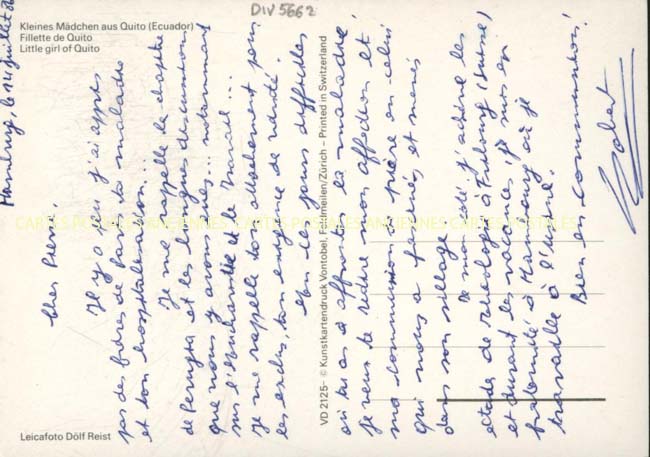 DIV 5662
Kleines Mädchen aus Quito (Ecuador)
Fillette de Quito
Little girl of Quito
Hambourg, le 14 juillet 86
Cher Piero,
Il y a j'ai appris
par des frères de Paris ta maladie
et ton hospitalisation...
Je me rappelle le chapitre
de Perugia et les longues discussions
que nous y avons eues... notamment
sur l'eucharistie et le travail...
Je me rappelle ton dévouement pour
les exclus, ton exigence de vérité.
Dans les jours difficiles
où tu as à affronter la maladie,
je veux te redire mon affection et
ma communion de prière en celui
qui nous a fascinés, et menés
dans son sillage.
De mon côté j'achève les
études de théologie à Fribourg (Suisse)
et durant les vacances, je suis en
fraternité à Hambourg où je
travaille à l'usine.
Bien en communion!
Robert
VD 2125 – © Kunstkartendruck Vontobel, Feldmeilen/Zürich – Printed in Switzerland
CARTES POSTALES ANCIENNES CARTES POSTALES ANCIENNES CARTES POSTALES
Leicafoto Dölf Reist